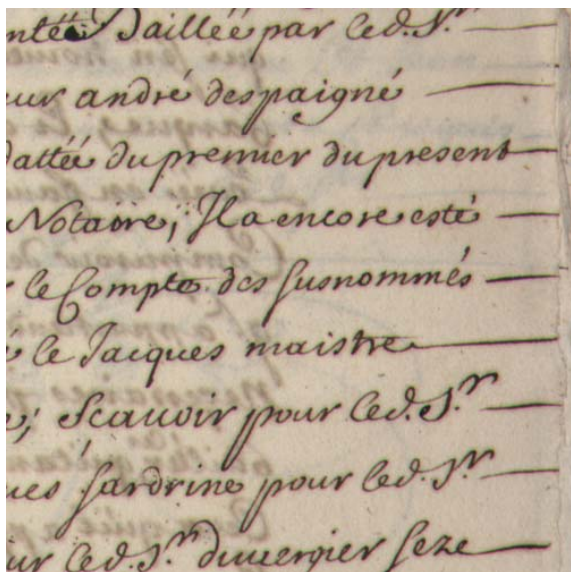 Daillée par led. S.r
andré despaigné
dattée du premier du present
Notaire; Il a encore esté
le Compte des susnommés
le Jacques maistre
Scauoir pour led. S.r
sardrine pour led. S.r
led. S.r duuergier seze